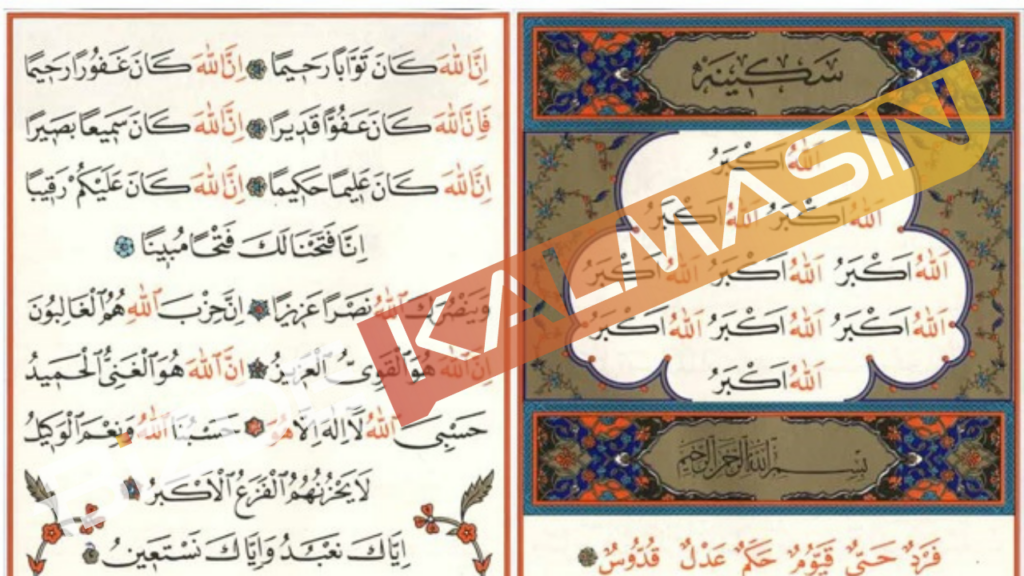 سكينه
اَللّٰهُ اَكْبَرُ
اَللّٰهُ اَكْبَرُ اَللّٰهُ اَكْبَرُ
اَللّٰهُ اَكْبَرُ اَللّٰهُ اَكْبَرُ اَللّٰهُ اَكْبَرُ
اَللّٰهُ اَكْبَرُ اَللّٰهُ اَكْبَرُ اَللّٰهُ اَكْبَرُ
اَللّٰهُ اَكْبَرُ
بِسْمِ اللّٰهِ الرَّحْمٰنِ الرَّحِيمِ
فَرْدٌ حَىٌّ قَيُّومٌ حَكَمٌ عَدْلٌ قُدُّوسٌ
اِنَّ اللّٰهَ كَانَ تَوَّابًا رَحِيمًا اِنَّ اللّٰهَ كَانَ غَفُورًا رَحِيمًا
فَاِنَّ اللّٰهَ كَانَ عَفُوًّا قَدِيرًا اِنَّ اللّٰهَ كَانَ سَمِيعًا بَصِيرًا
اِنَّ اللّٰهَ كَانَ عَلِيمًا حَكِيمًا اِنَّ اللّٰهَ كَانَ عَلَيْكُمْ رَقِيبًا
اِنَّا فَتَحْنَا لَكَ فَتْحًا مُبِينًا
وَيَنْصُرَكَ اللّٰهُ نَصْرًا عَزِيزًا اِنَّ حِزْبَ اللّٰهِ هُمُ الْغَالِبُونَ
اِنَّ اللّٰهَ هُوَ الْقَوِىُّ الْعَزِيزُ اِنَّ اللّٰهَ هُوَ الْغَنِىُّ الْحَمِيدُ
حَسْبِىَ اللّٰهُ لَا اِلٰهَ اِلَّا هُوَ حَسْبُنَا اللّٰهُ وَنِعْمَ الْوَكِيلُ
لَا يَحْزُنُهُمُ الْفَزَعُ الْاَكْبَرُ
اِيَّاكَ نَعْبُدُ وَاِيَّاكَ نَسْتَعِينُ
KALMASIN